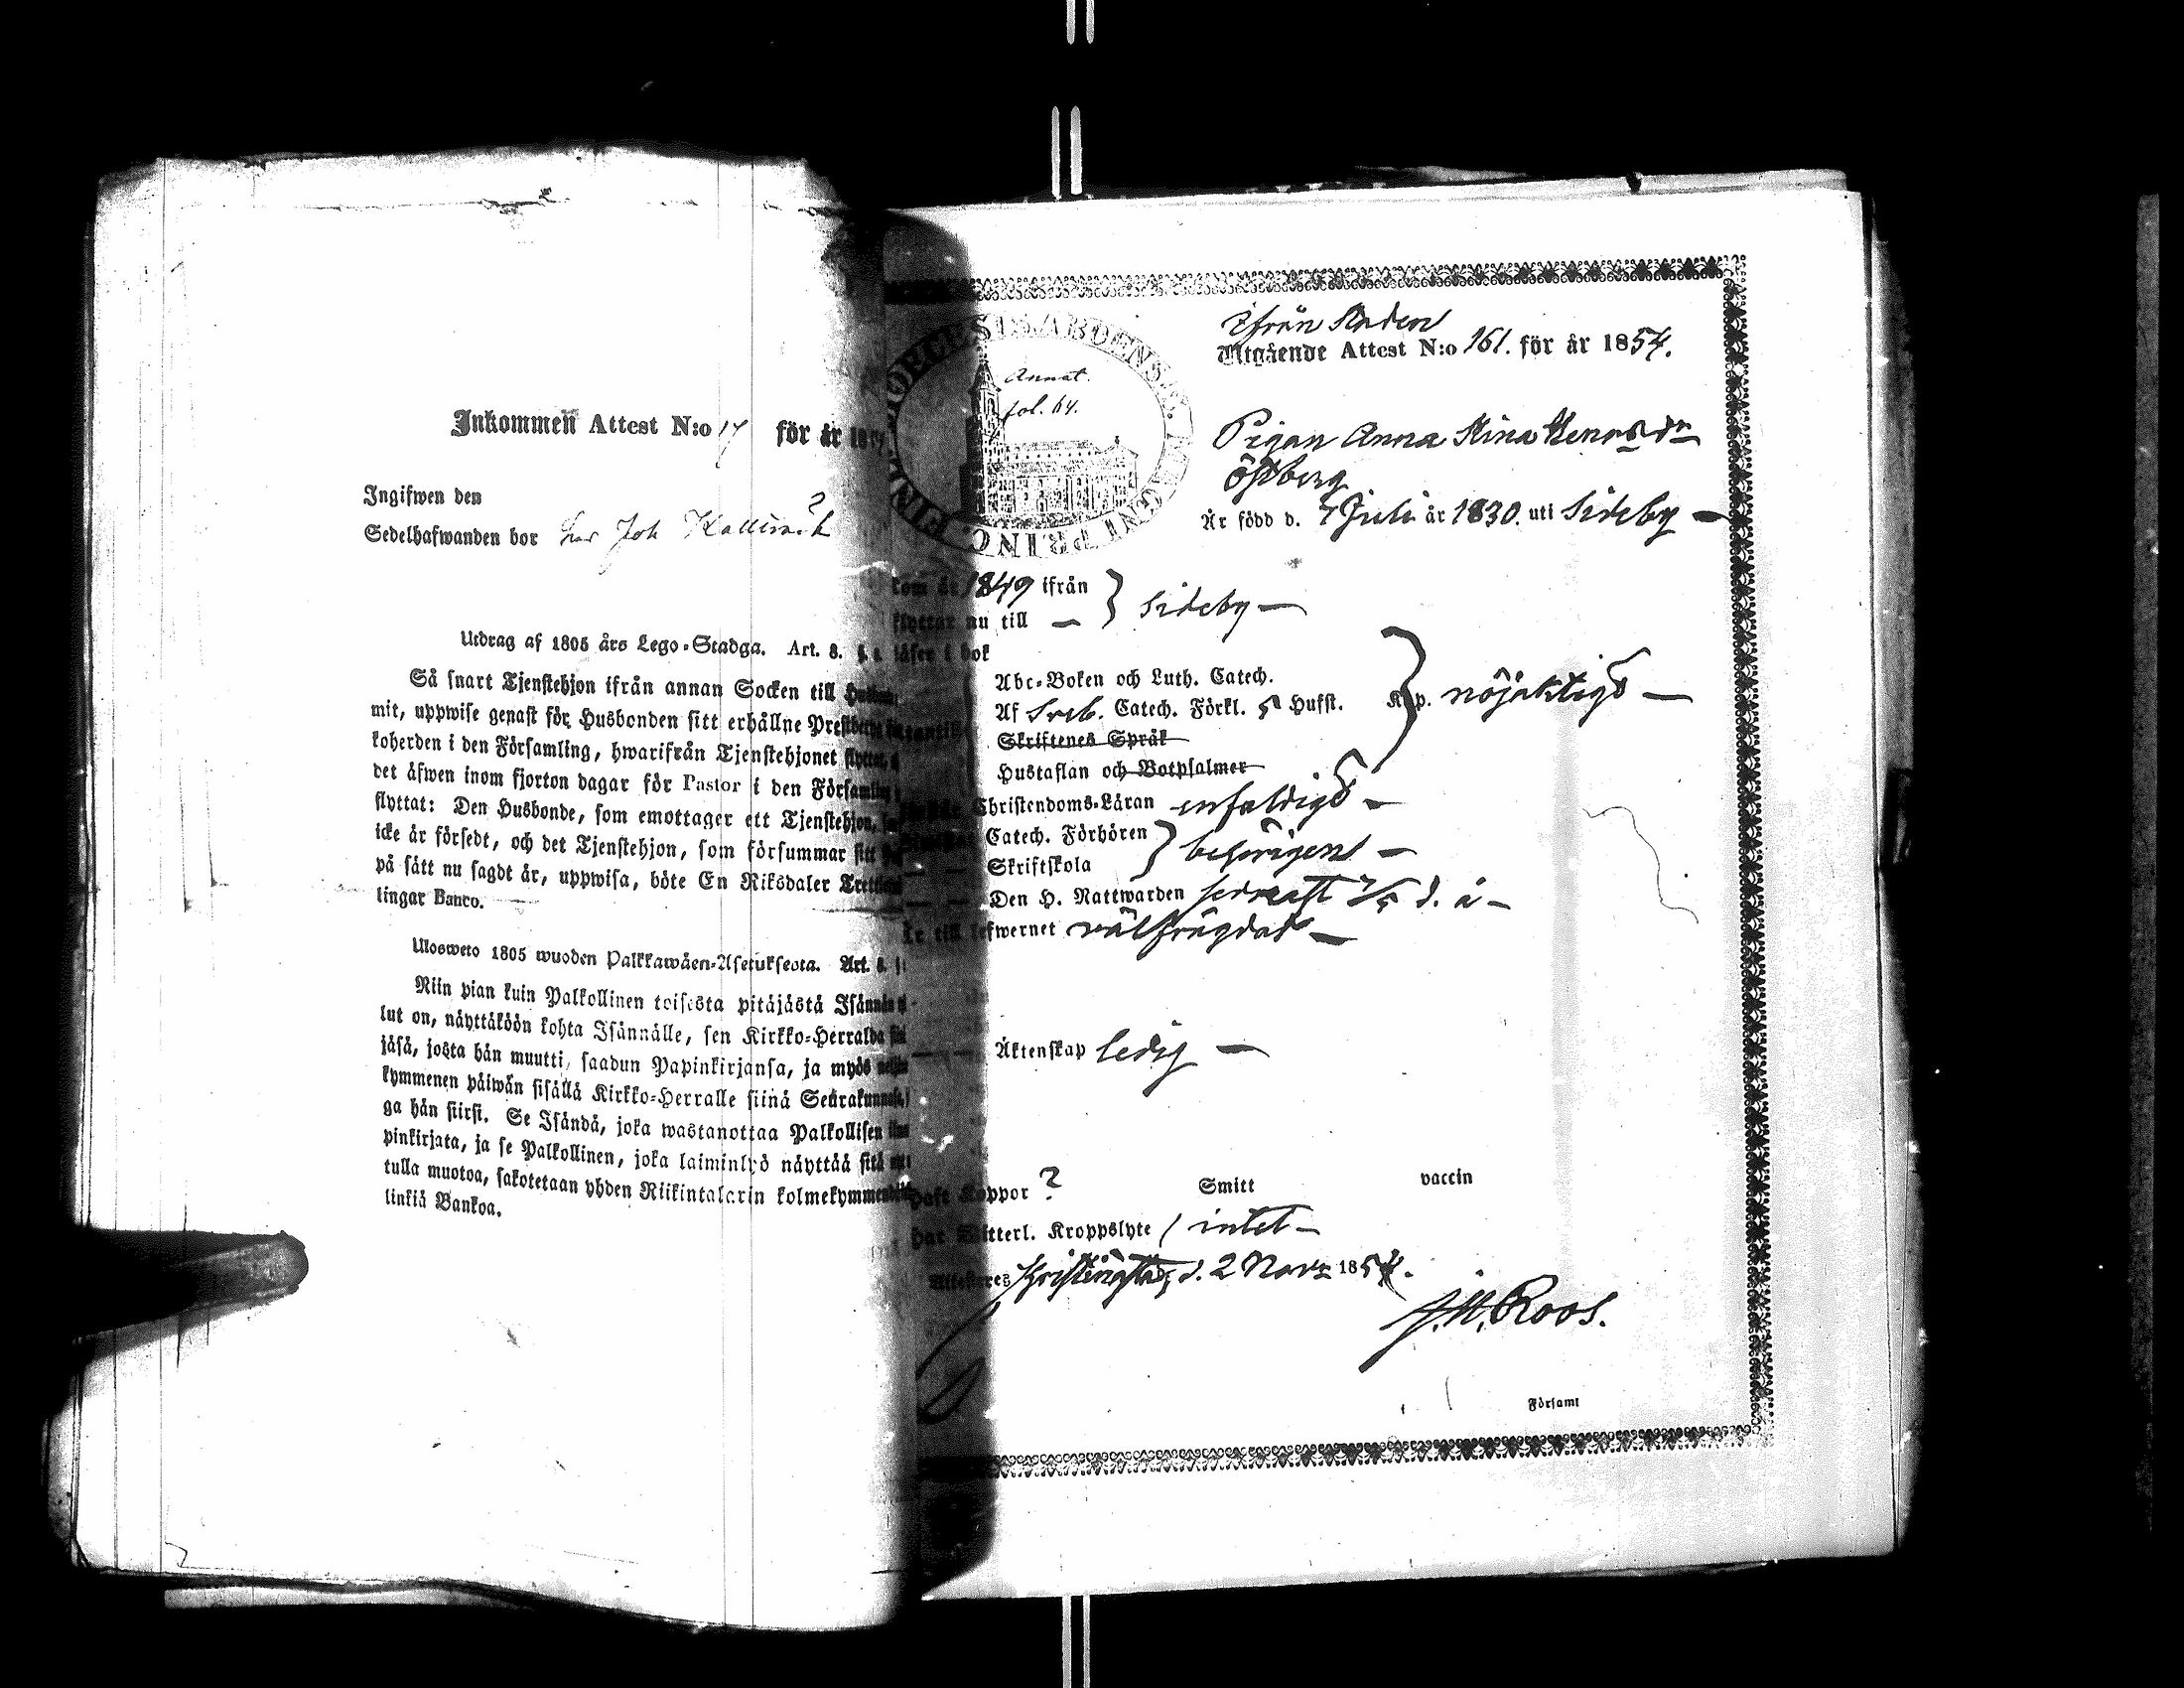 Inkommen Attest N:o 17 för år
Ingifwen den
Sedelhafwanden bor hos Joh
Utdrag af 1805 års Lego-Stadga. Art. 8.
Så snart Tjenstehjon ifrån annan Socken till
mit, uppwise genast för Husbonden sitt erhållne
koherden i den Församling, hwarifrån Tjenstehjonet
det äfwen inom fjorton dagar för Pastor i den
flyttat: Den Husbonde, som emottager ett Tjenstehjon,
icke är försedt, och det Tjenstehjon, som försummar sitt
på sätt nu sagdt är, uppwisa, böte En Riksdaler
lingar Banco.
Ulosweto 1805 wuoden Palkkawäen-Asetuksesta. Art. 8.
Niin pian kuin Palkollinen toisesta pitäjästä
lut on, näyttäköön kohta Isännälle, sen Kirkko-Herralda
jäsä, josta hän muutti, saadun Papinkirjansa, ja myös
kymmenen päiwän sisällä Kirkko-Herralle siinä
ga hän siirsi. Se Isändä, joka wastanottaa Palkollisen
pinkirjata, ja se Palkollinen, joka laiminlyö näyttää sitä
tulla muotoa, sakotetaan yhden Riikintalarin
linkiä Bankoa.
Annat.
fol. 64.
ifrån Staden
Utgående Attest N:o 161. för år 1854.
Pigan Anna Stina
Östberg
Är född d. 7 Juli år 1830. uti Sideby —
kom år 1849 ifrån
flyttar nu till — } Sideby —
läser i bok
Abc-Boken och Luth. Catech.
Af Sreb. Catech. Förkl. Hufst. nöjaktigt —
Skriftenes Språk
Hustaflan och Botpsalmer
Christendoms-Läran enfaldigt —
Catech. Förhören
Skriftskola } behörigen —
Den H. Nattwarden sednast d. å —
Är till lefwernet välfrägdad —
— — Äktenskap ledig —
haft Koppor ? Smitt vaccin
har Kroppslyte / intet —
Kristinestad, d. 2 Novr 1854.
J. M. Roos.
Församl